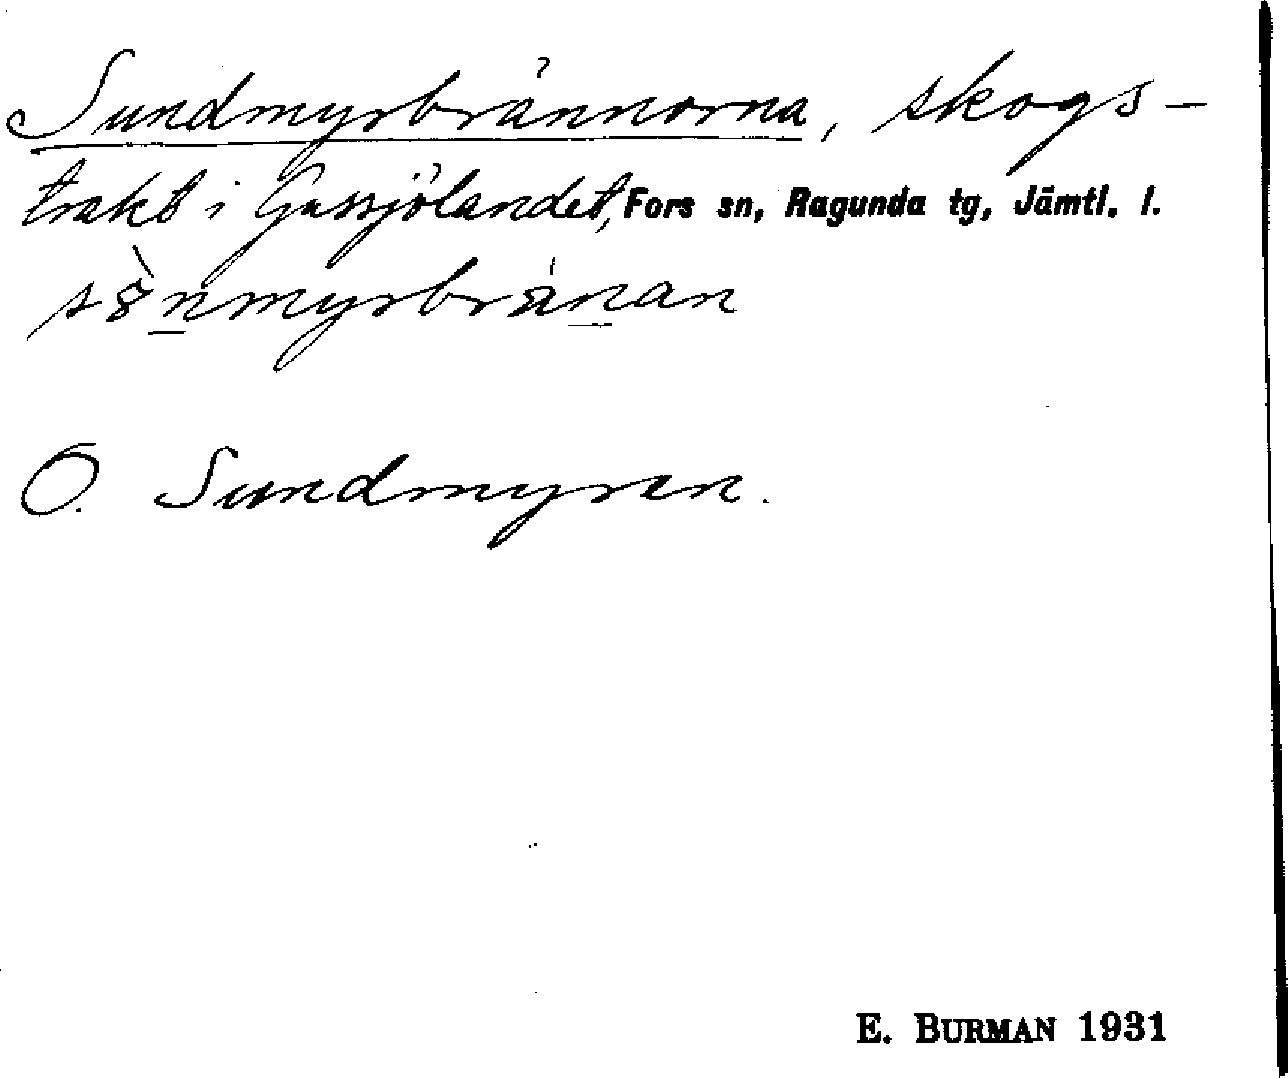 Sundmyrbrännorna, skogs-
trakt i Gussjölandet, Fors sn, Ragunda tg, Jämtl. l.
Ö. Sundmyren.
E. BURMAN 1931